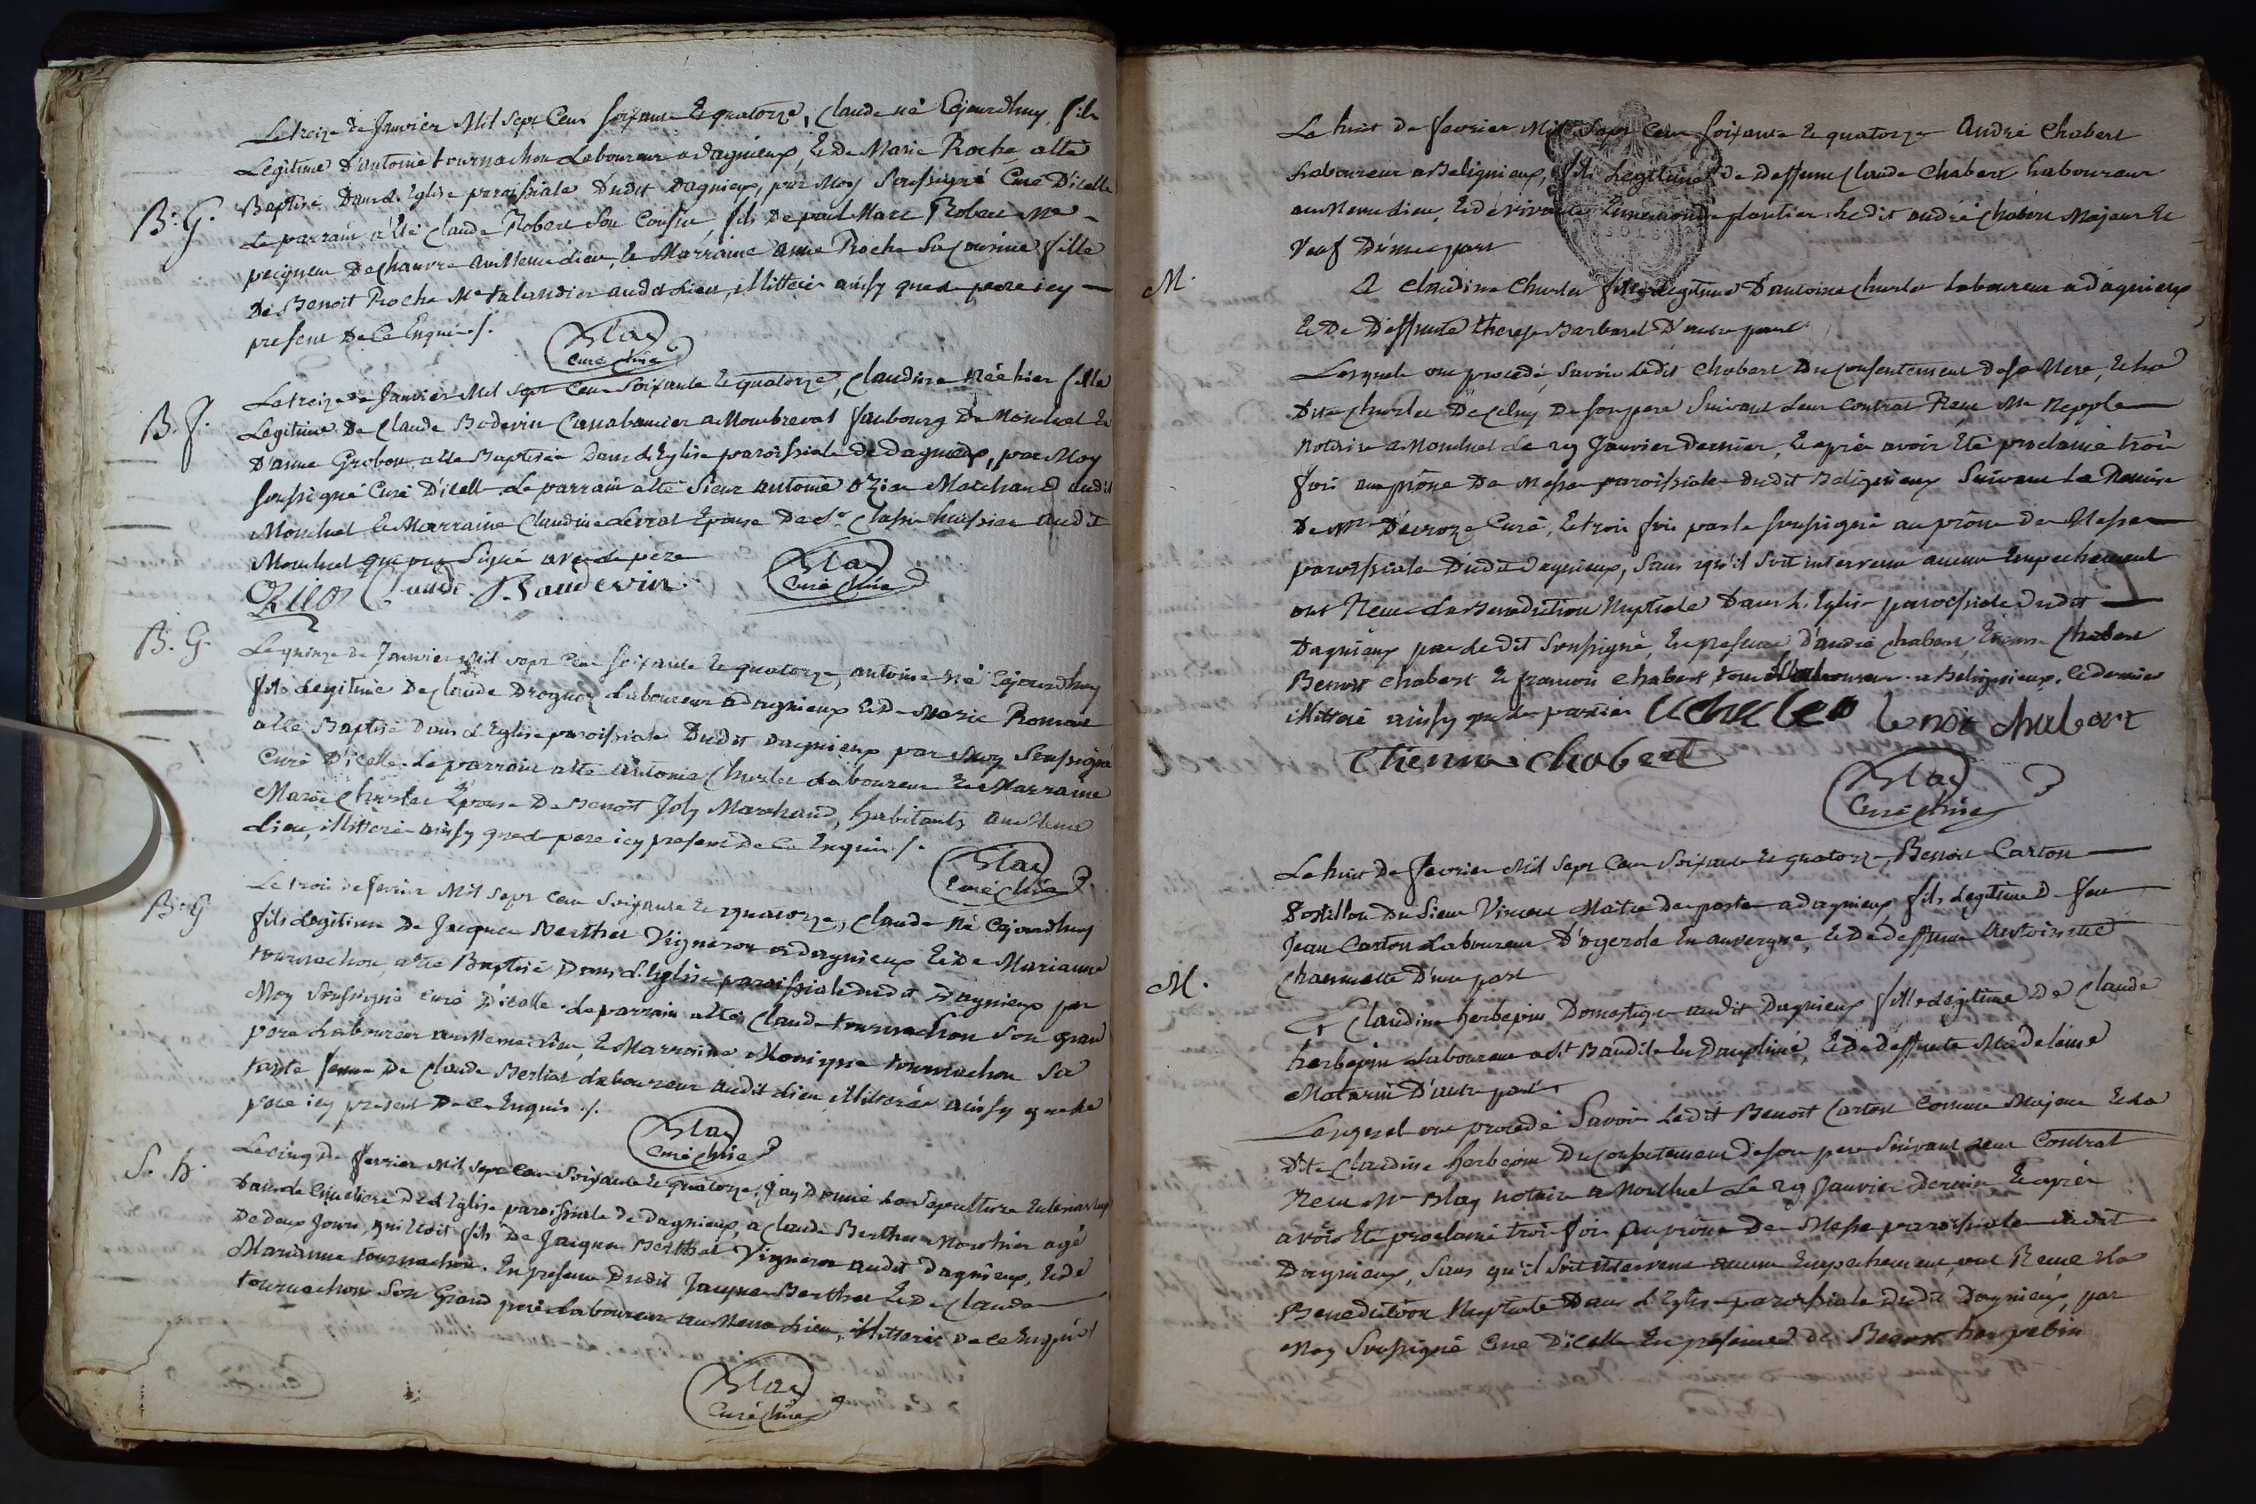 Le treize de Janvier Mil Sept Cent soixante Et quatorze, Claude né Cejourdhuy, fils
Legitime D'antoine tournachon Laboureur a dagnieux, Et De Marie Roche a Eté
B. G.
Baptisé Dans L'Eglise paroissiale Dudit Dagnieux, par Moy Soussigné Curé D'icelle
Le parrain a Eté Claude Robert Son Cousin, fils De paul Marc Robert Me
peigneur De Chanvre au Meme dieu, la Marraine anne Roche Sa Cousine fille
De Benoit Roche Me taleandier aud. Lieu, illitterés ainsy que le pere icy
present De Ce Enquis /.
Blay
Curé
B. f.
Le treize de Janvier Mil Sept Cent Soixante Et quatorze, Claudine née hier fille
Legitime De Claude Bodevin Cabaretier a Montbreval faubourg De Montluel Et
D'anne Grobon a Eté Baptisée Dans L'Eglise paroissiale De Dagnieux, par Moy
Soussigné Curé D'icelle Le parrain a Eté Sieur antoine Marchand audit
Montluel la Marraine Claudine Levrat Epouse De Sr huissier audit
Montluel qui ont Signé avec Le pere
Claude Baudevin
Blay
Curé
B. G.
Le quinze de Janvier Mil Sept Cent soixante Et quatorze, antoine né Cejourdhuy
fils Legitime De Claude Drognoz Laboureur a Dagnieux Et De Marie Romane
a Eté Baptisé Dans L'Eglise paroissiale Dudit Dagnieux par Moy Soussigné
Curé D'icelle. Le parrain a Eté antoine Churlet Laboureur Et La Marraine
Marie Churlet Epouse De Benoit Joly Marchand, habitants au Meme
Lieu, illitterés ainsy que Le pere icy present De Ce Enquis /.
Blay
Curé
B. G
Le trois de fevrier Mil Sept Cent Soixante Et quatorze, Claude Né Cejourdhuy
fils Legitime De Jacques Berthet Vigneron a Dagnieux Et De Marianne
tournachon, a Eté Baptisé Dans L'Eglise paroissiale dudit Dagnieux par
Moy Soussigné Curé D'icelle. Le parrain a Eté Claude tournachon Son grand
pere Laboureur au Meme Lieu, la Marraine Monique tournachon Sa
tante femme De Claude Berliat Laboureur audit Lieu illitterés ainsy que le
pere icy present De Ce Enquis ./.
Blay
Curé
S. h.
Le Cinq De fevrier Mil Sept Cent Soixante Et quatorze, j'ay Donné La Sepulture Eclesiastiq
Dans Le Cimetiere De L'Eglise paroissiale de Dagnieux, a Claude Berthet Mort hier agé
De deux Jours, qui Etoit fils De Jacques Berthet Vigneron audit Dagnieux, Et De
Marianne tournachon. En presence Dudit Jacques Berthet Et De Claude
tournachon Son Grand pere Laboureur au Meme Lieu, illitterés De Ce Enquis
Blay
Curé
Le huit De fevrier Mil Sept Cent Soixante Et quatorze André Chabert
Laboureur a Beligneux, fils Legitime De Deffunt Claude Chabert Laboureur
au Meme dieu, Et De vivante Ennemonde plantier. Ledit andré Chabert Majeur Et
Veuf D'une part
M.
& Claudine Churlet fille Legitime D'antoine Churlet Laboureur a dagnieux
Et De Deffunte therese Barbaret D'autre part
Lesquels ont procedé, Savoir Ledit Chabert Du Consentement De Sa Mere, Et La
Dite Churlet De Celuy De Son pere Suivant Leur Contrat Reçu Me Nepple
Notaire a Montluel Le 29 Janvier dernier, Et après avoir Eté proclamés trois
fois au prône De Messe paroissiale dudit Beligneux Suivant La Remise
De Mr Decroze Curé, Et trois fois par le Soussigné au prône De Messe
paroissiale Dudit Dagnieux, Sans qu'il Soit intervenu aucun Empechement
ont Reçu La Benediction Nuptiale Dans L'Eglise paroissiale Dudit
Dagnieux par Le Dit Soussigné, En presence D'andré Chabert, Etienne Chabert
Benoit Chabert Et françois Chabert tous Laboureurs a Beligneux. Le dernier
illitteré ainsy que Le premier Churlet benoit chabert
Etienne Chabert
Blay
Curé
Le huit De fevrier Mil Sept Cent Soixante Et quatorze, Benoit Carton
Postillon Du Sieur Vincent Maitre De poste a dagnieux fils Legitime De feu
Jean Carton Laboureur D'ogerole En auvergne, Et De deffunte antoinette
Chaumette D'une part
M.
Et Claudine herbepin Domestique audit Dagnieux fille Legitime De Claude
herbepin Laboureur a St Baudile En Dauphiné, Et De deffunte Madeleine
Matarin D'autre part
Lesquels ont procedé Savoir Ledit Benoit Carton Comme Majeur Et La
Dite Claudine herbepin Du Consentement De Son pere Suivant Leur Contrat
Reçu Me Blay notaire a Montluel Le 29 Janvier dernier Et après
avoir Eté proclamés trois fois au prône De Messe paroissiale dudit
Dagnieux, Sans qu'il Soit intervenu aucun Empechement, ont Reçu La
Benediction Nuptiale Dans L'Eglise paroissiale dudit Dagnieux, par
Moy Soussigné Curé D'icelle En presence de Benoit herpebin